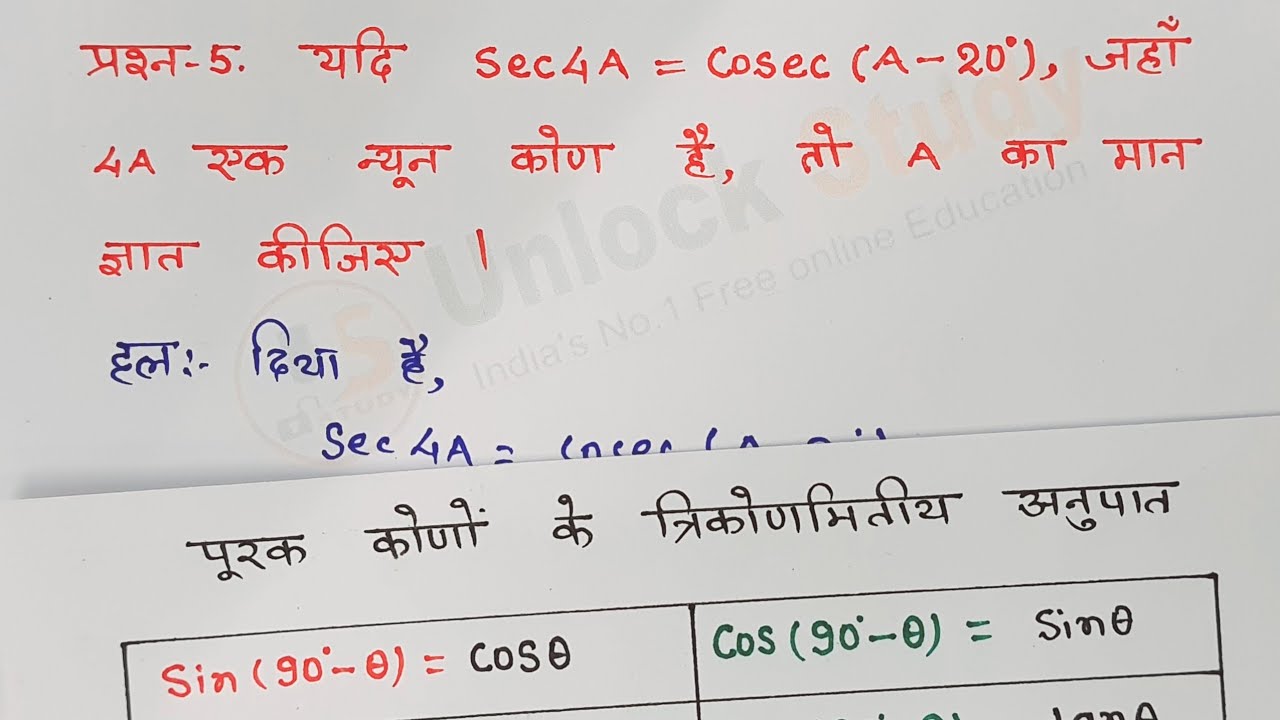 प्रश्न-5. यदि Sec4A = Cosec (A-20°), जहाँ
4A एक न्यून कोण है, तो A का मान
ज्ञात कीजिए ।
Unlock Study
India's No.1 Free online Education
हल:- दिया है,
Sec 4A =
पूरक कोणों के त्रिकोणमितीय अनुपात
Sin (90°-θ) = Cosθ
Cos (90°-θ) = Sinθ